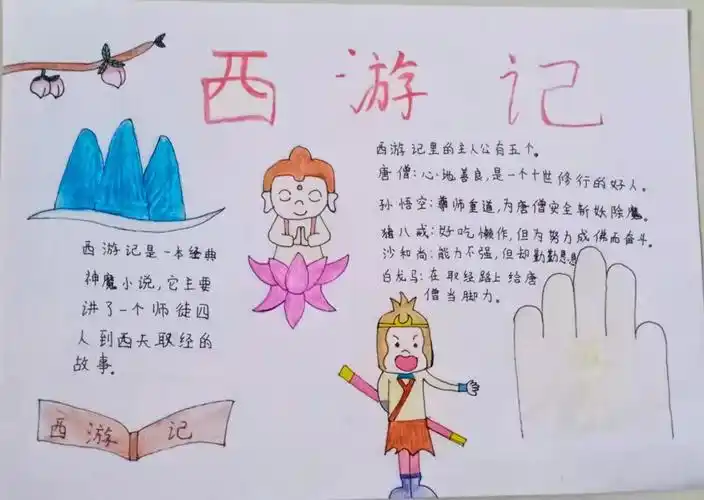 西游记
西游记里的主人公有五个。
唐僧:心地善良,是一个十世修行的好人。
孙悟空:尊师重道,为唐僧安全斩妖除魔。
猪八戒:好吃懒作,但为努力成佛而奋斗。
沙和尚:能力不强,但却勤勤恳恳
白龙马:在取经路上给唐
僧当脚力。
西游记是一本经典
神魔小说,它主要
讲了一个师徒四
人到西天取经的
故事。
西游记